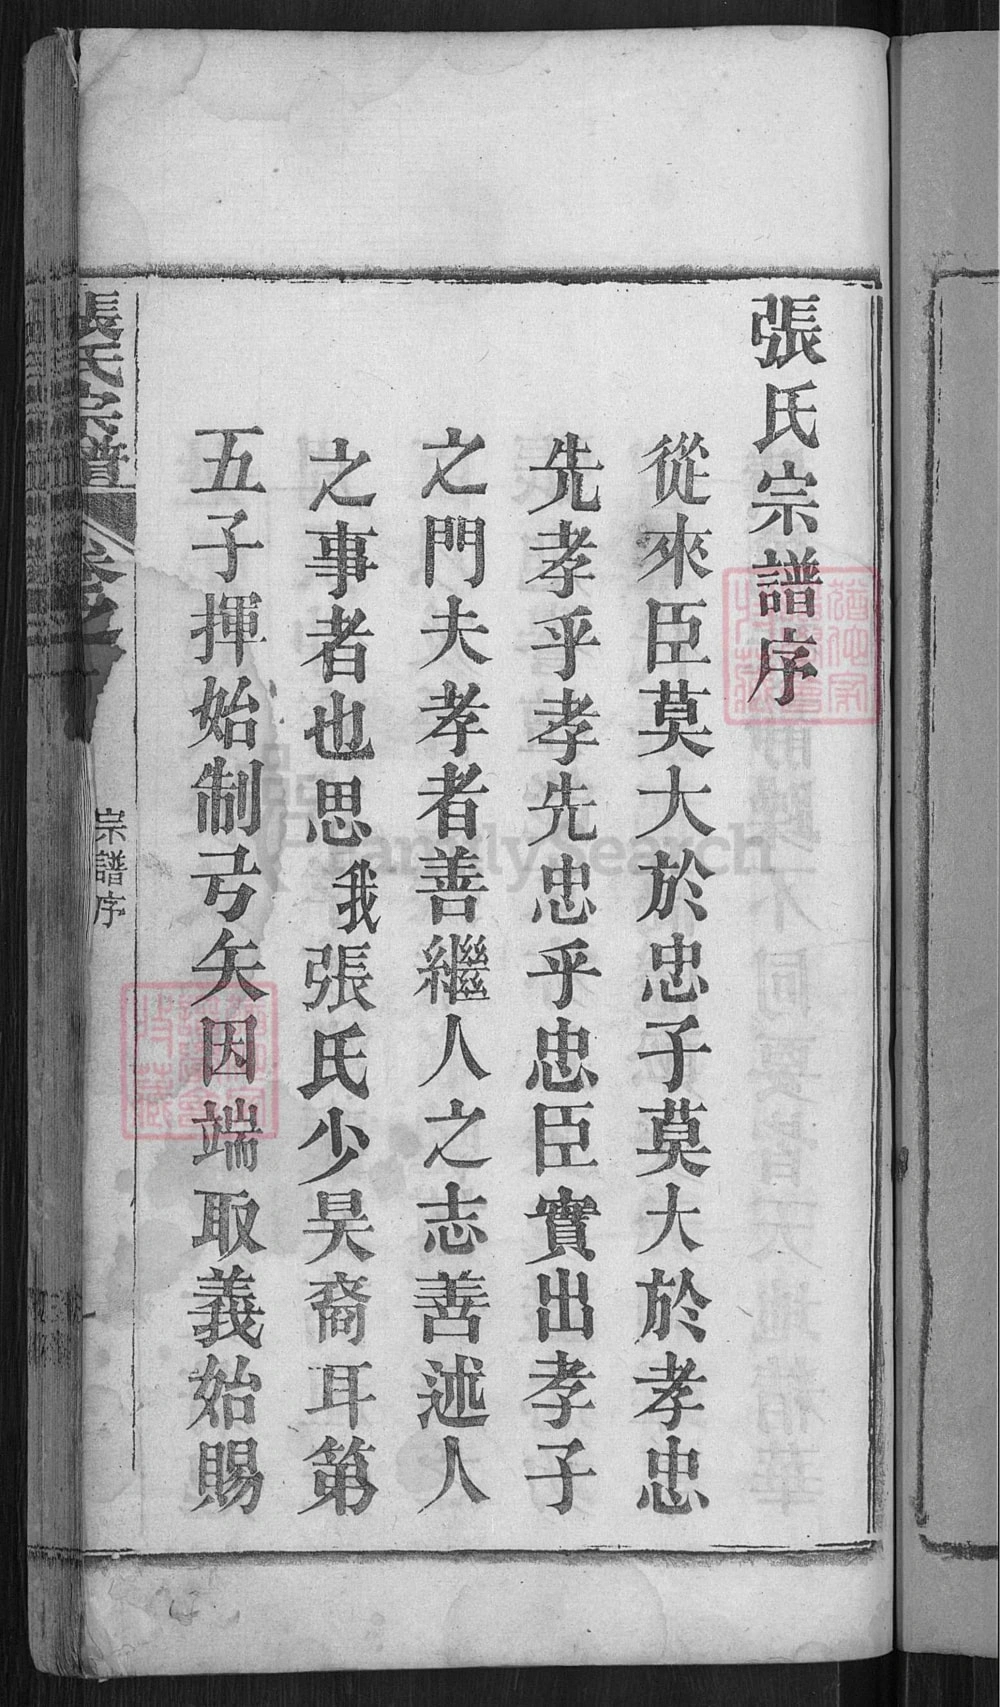 張氏宗譜序
從來臣莫大於忠子莫大於孝忠
先孝乎孝先忠乎忠臣實出孝子
之門夫孝者善繼人之志善述人
之事者也思我張氏少昊裔耳第
五子揮始制弓矢因端取義始賜
張氏宗譜
宗譜序
FamilySearch